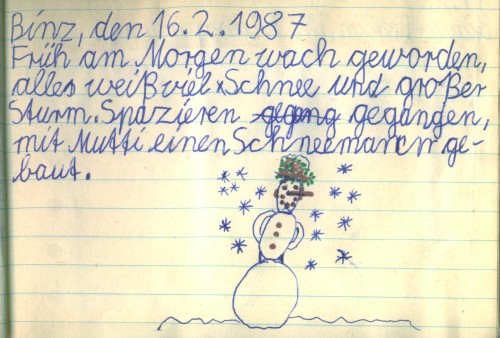 Binz, den 16.2.1987
Früh am Morgen wach geworden,
alles weiß viel Schnee und großer
Sturm. Spazieren gegang gegangen,
mit Mutti einen Schneemann ge-
baut.